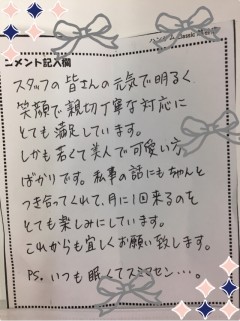 コメント記入欄
スタッフの皆さんの元気で明るく
笑顔で親切丁寧な対応に
とても満足しています。
しかも若くて美人で可愛い方
ばかりです。私事の話にもちゃんと
つき合ってくれて、月に1回来るのを
とても楽しみにしています。
これからも宜しくお願い致します。
PS. いつも眠くてスミマセン…。